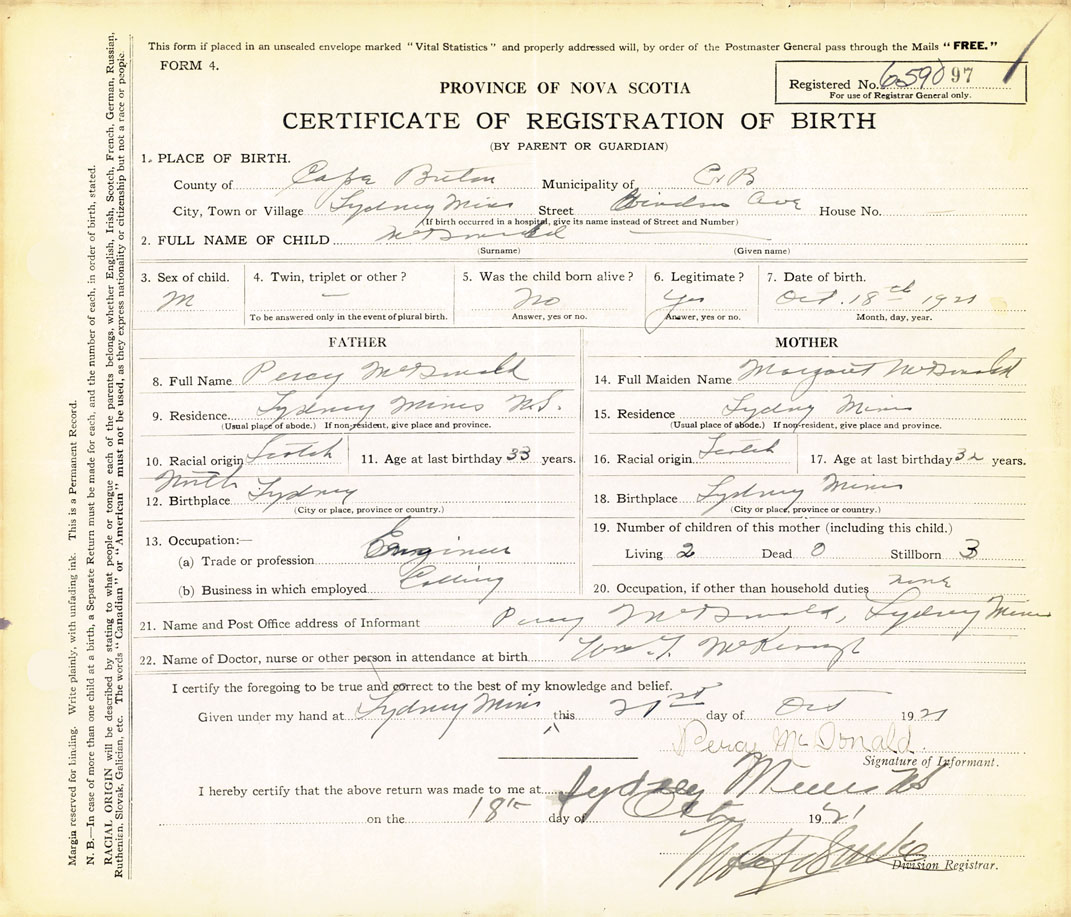 This form if placed in an unsealed envelope marked "Vital Statistics" and properly addressed will, by order of the Postmaster General pass through the Mails "FREE."
FORM 4.
Registered No. 6590 97
For use of Registrar General only.
PROVINCE OF NOVA SCOTIA
CERTIFICATE OF REGISTRATION OF BIRTH
(BY PARENT OR GUARDIAN)
1. PLACE OF BIRTH.
County of Cape Breton Municipality of C.B
City, Town or Village Sydney Mines Street Ave House No.
(If birth occurred in a hospital, give its name instead of Street and Number)
2. FULL NAME OF CHILD McDonald
(Surname) (Given name)
3. Sex of child. 4. Twin, triplet or other? 5. Was the child born alive? 6. Legitimate? 7. Date of birth.
M — No Yes Oct. 18th 1921
To be answered only in the event of plural birth. Answer, yes or no. Answer, yes or no. Month, day, year.
FATHER
8. Full Name Percy McDonald
9. Residence Sydney Mines N.S.
(Usual place of abode.) If non-resident, give place and province.
10. Racial origin Scotch 11. Age at last birthday 33 years.
12. Birthplace North Sydney
(City or place, province or country.)
13. Occupation:—
(a) Trade or profession Engineer
(b) Business in which employed
MOTHER
14. Full Maiden Name Margaret McDonald
15. Residence Sydney Mines
(Usual place of abode.) If non-resident, give place and province.
16. Racial origin Scotch 17. Age at last birthday 32 years.
18. Birthplace Sydney Mines
(City or place, province or country.)
19. Number of children of this mother (including this child.)
Living 2 Dead 0 Stillborn 3
20. Occupation, if other than household duties none
21. Name and Post Office address of Informant Percy McDonald, Sydney Mines
22. Name of Doctor, nurse or other person in attendance at birth
I certify the foregoing to be true and correct to the best of my knowledge and belief.
Given under my hand at Sydney Mines this 21st day of Oct 1921
Percy McDonald.
Signature of Informant.
I hereby certify that the above return was made to me at Sydney Mines NS
on the 18th day of 1921
Division Registrar.
Margin reserved for binding. Write plainly, with unfading ink. This is a Permanent Record.
N. B.—In case of more than one child at a birth, a Separate Return must be made for each, and the number of each, in order of birth, stated.
RACIAL ORIGIN will be described by stating to what people or tongue each of the parents belongs, whether English, Irish, Scotch, French, German, Russian,
Ruthenian, Slovak, Galician, etc. The words "Canadian" or "American" must not be used, as they express nationality or citizenship but not a race or people.